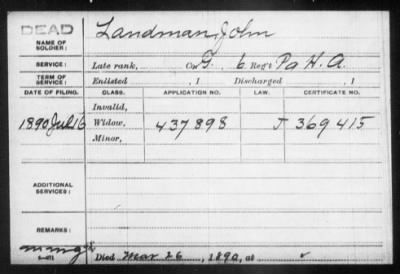 DEAD
NAME OF SOLDIER: Landman, John
SERVICE: Late rank, Co G. 6 Reg't Pa H. A.
TERM OF SERVICE: Enlisted , 1 Discharged , 1
DATE OF FILING. CLASS. APPLICATION NO. LAW. CERTIFICATE NO.
Invalid,
1890 Jul 16 Widow, 437898 J 369415
Minor,
ADDITIONAL SERVICES:
REMARKS:
Died Mar 26, 1890, at